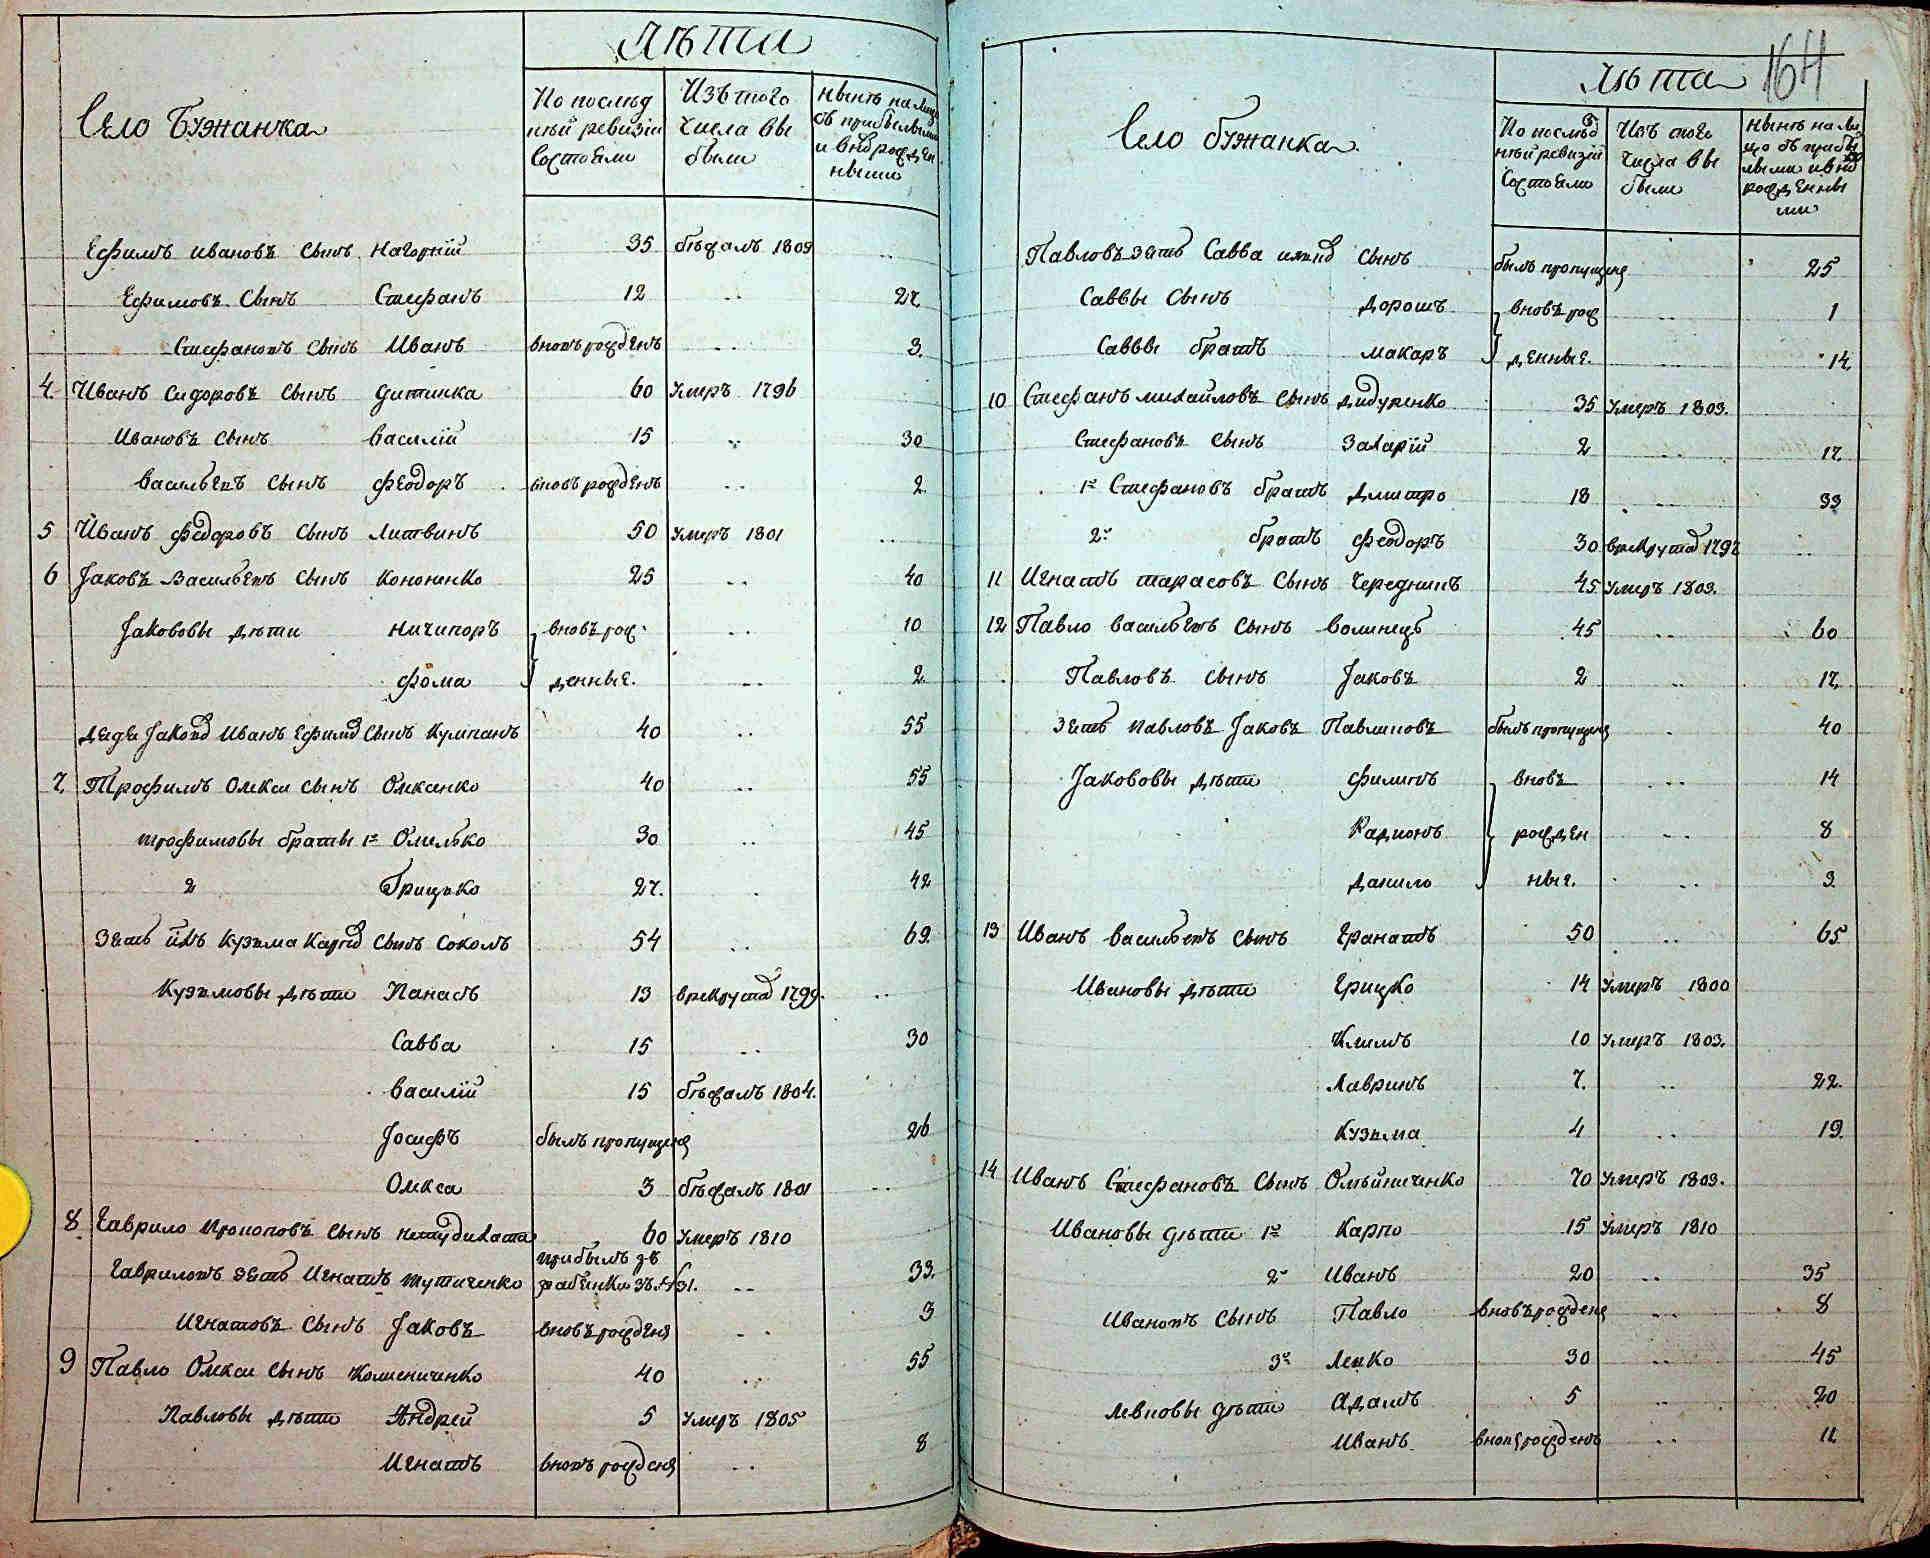 Лѣта
Село Бужанка
По послѣд
нѣй ревизіи
состояли
Изъ того
числа вы
были
Нынѣ на лицо
съ прибылыми
и вновь рожден
ными
Ефимъ Ивановъ сынъ Нагорній 35 бѣжалъ 1809 ..
Ефимовъ сынъ Стефанъ 12 .. 27
Стефановъ сынъ Иванъ вновь рожденъ .. 3.
4. Иванъ Сидоровъ сынъ Дитинка 60 Умеръ 1796
Ивановъ сынъ Василій 15 .. 30
Васильевъ сынъ Феодоръ вновь рожденъ .. 2.
5 Иванъ Федоровъ сынъ Литвинъ 50 Умеръ 1801 ...
6 Яковъ Васильевъ сынъ Кононенко 25 .. 40
Якововы дѣти Ничипоръ вновь рож .. 10
Фома денные. .. 2.
дядя Яковъ Иванъ Ефимовъ сынъ Кумпанъ 40 .. 55
7. Трофимъ Олекси сынъ Олксенко 40 .. 55
Трофимовы братьи 1й Омелько 30 .. 45
2 Грицько 27. . 42
Зять ихъ Кузьма Карповъ сынъ Соколъ 54 .. 69.
Кузьмовы дѣти Панасъ 13 врекруты 1799. ...
Савва 15 .. 30
Василій 15 бѣжалъ 1804.
Іосифъ былъ пропущенъ 26
Олкса 3 бѣжалъ 1801 ...
8. Гаврило Прокоповъ сынъ Непийдихата 60 Умеръ 1810
Гавриловъ зять Игнатъ Тутиченко прибылъ зъ
33.
Игнатовъ сынъ Яковъ вновь рожденъ .. 3
9 Павло Олкси сынъ Колисниченко 40 .. 55
Павловы дѣти Андрей 5 умеръ 1805
Игнатъ вновь рожденъ .. 8
164
Лѣта
Село Бужанка.
По послѣд
нѣй ревизіи
состояли
Изъ того
числа вы
были
Нынѣ на ли
цо съ прибы
лыми и вно
рожденны
ми
Павловъ зять Савва сынъ былъ пропущенъ 25
Саввы сынъ Дорошъ вновь рож .. 1
Саввы братъ Макаръ денные. 14.
10 Стефанъ Михайловъ сынъ Дидуренко 35 Умеръ 1809.
Стефановъ сынъ Захарій 2 ... 17.
1й Стефановъ братъ Дмитро 18 ... 33
2й братъ Феодоръ 30 врекруты 1797 ..
11 Игнатъ Тарасовъ сынъ Чередникъ 45 Умеръ 1809.
12 Павло Васильевъ сынъ Волинецъ 45 .. 60
Павловъ сынъ Яковъ 2 .. 17.
зять Павловъ Яковъ Павлиновъ былъ пропущенъ . 40
Якововы дѣти Филипъ вновь ... 14
Радионъ рожден ... 8
Данило ные. .. 3.
13 Иванъ Васильевъ сынъ Гранатъ 50 .. 65
Ивановы дѣти Грицко 14 Умеръ 1800
Климъ 10 Умеръ 1803.
Лавринъ 7. .. 22.
Кузьма 4 .. 19.
14 Иванъ Стефановъ сынъ Олѣйниченко 70 Умеръ 1809.
Ивановы дѣти 1й Карпо 15 Умеръ 1810
2й Иванъ 20 .. 35
Ивановъ сынъ Павло вновь рожденъ .. 8
3й Левко 30 .. 45
Левковы дѣти Адамъ 5 .. 20
Иванъ вновь рожденъ .. 11